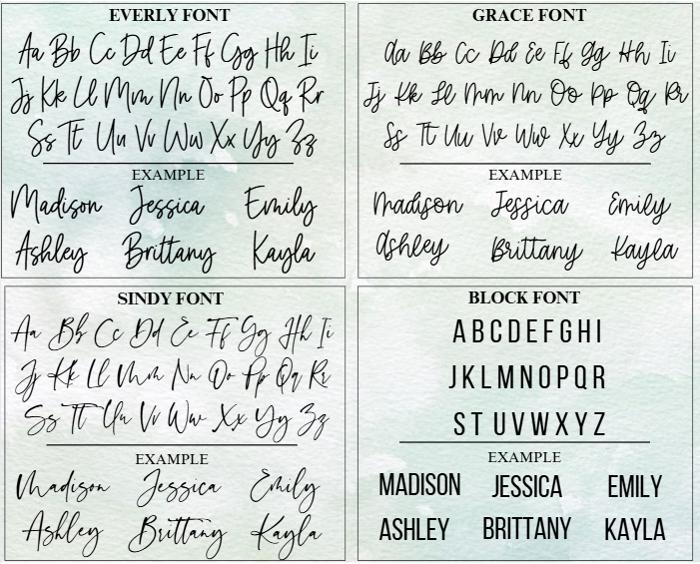 EVERLY FONT
Aa Bb Cc Dd Ee Ff Gg Hh Ii
Jj Kk Ll Mm Nn Oo Pp Qq Rr
Ss Tt Uu Vv Ww Xx Yy Zz
EXAMPLE
Madison Jessica Emily
Ashley Brittany Kayla
GRACE FONT
Aa Bb Cc Dd Ee Ff Gg Hh Ii
Jj Kk Ll Mm Nn Oo Pp Qq Rr
Ss Tt Uu Vv Ww Xx Yy Zz
EXAMPLE
Madison Jessica Emily
Ashley Brittany Kayla
SINDY FONT
Aa Bb Cc Dd Ee Ff Gg Hh Ii
Jj Kk Ll Mm Nn Oo Pp Qq Rr
Ss Tt Uu Vv Ww Xx Yy Zz
EXAMPLE
Madison Jessica Emily
Ashley Brittany Kayla
BLOCK FONT
A B C D E F G H I
J K L M N O P Q R
S T U V W X Y Z
EXAMPLE
MADISON JESSICA EMILY
ASHLEY BRITTANY KAYLA